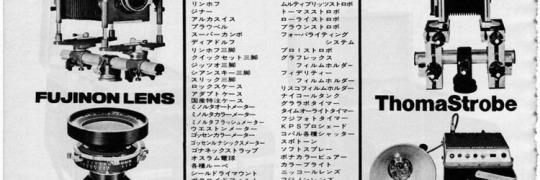 FUJINON LENS
リンホフ
ジナー
アルカスイス
プラウベル
スーパーカンボ
ディアドルフ
リンホフ三脚
クイックセット三脚
ジッツオ三脚
シアンスキー三脚
スリック三脚
ロックスケース
アダプトケース
国産特注ケース
ミノルタオートメーター
ミノルタカラーメーター
ミノルタフラッシュメーター
ウエストンメーター
ゴッセンカラーメーター
ゴッセンルナシックスメーター
ゴナキックストラップ
オスラム電球
各種ルーペ
シールドライマウント
ムルティブリッツストロボ
トーマスストロボ
ローライストロボ
ブラウンストロボ
フォーバライティング
システム
プロ!ストロボ
グラフレックス
フィルムホルダー
フィデリティー
フィルムホルダー
リスコフィルムホルダー
ナイコールタンク
グララボタイマー
タイムオーライトタイマー
フジフォトタイマー
KPSプロシェード
コパル各種シャッター
スポトーン
ソフトスプレー
ボナカラービュアー
カラーブライト
ニッコールレンズ
フジノンレンズ
ThomaStrobe